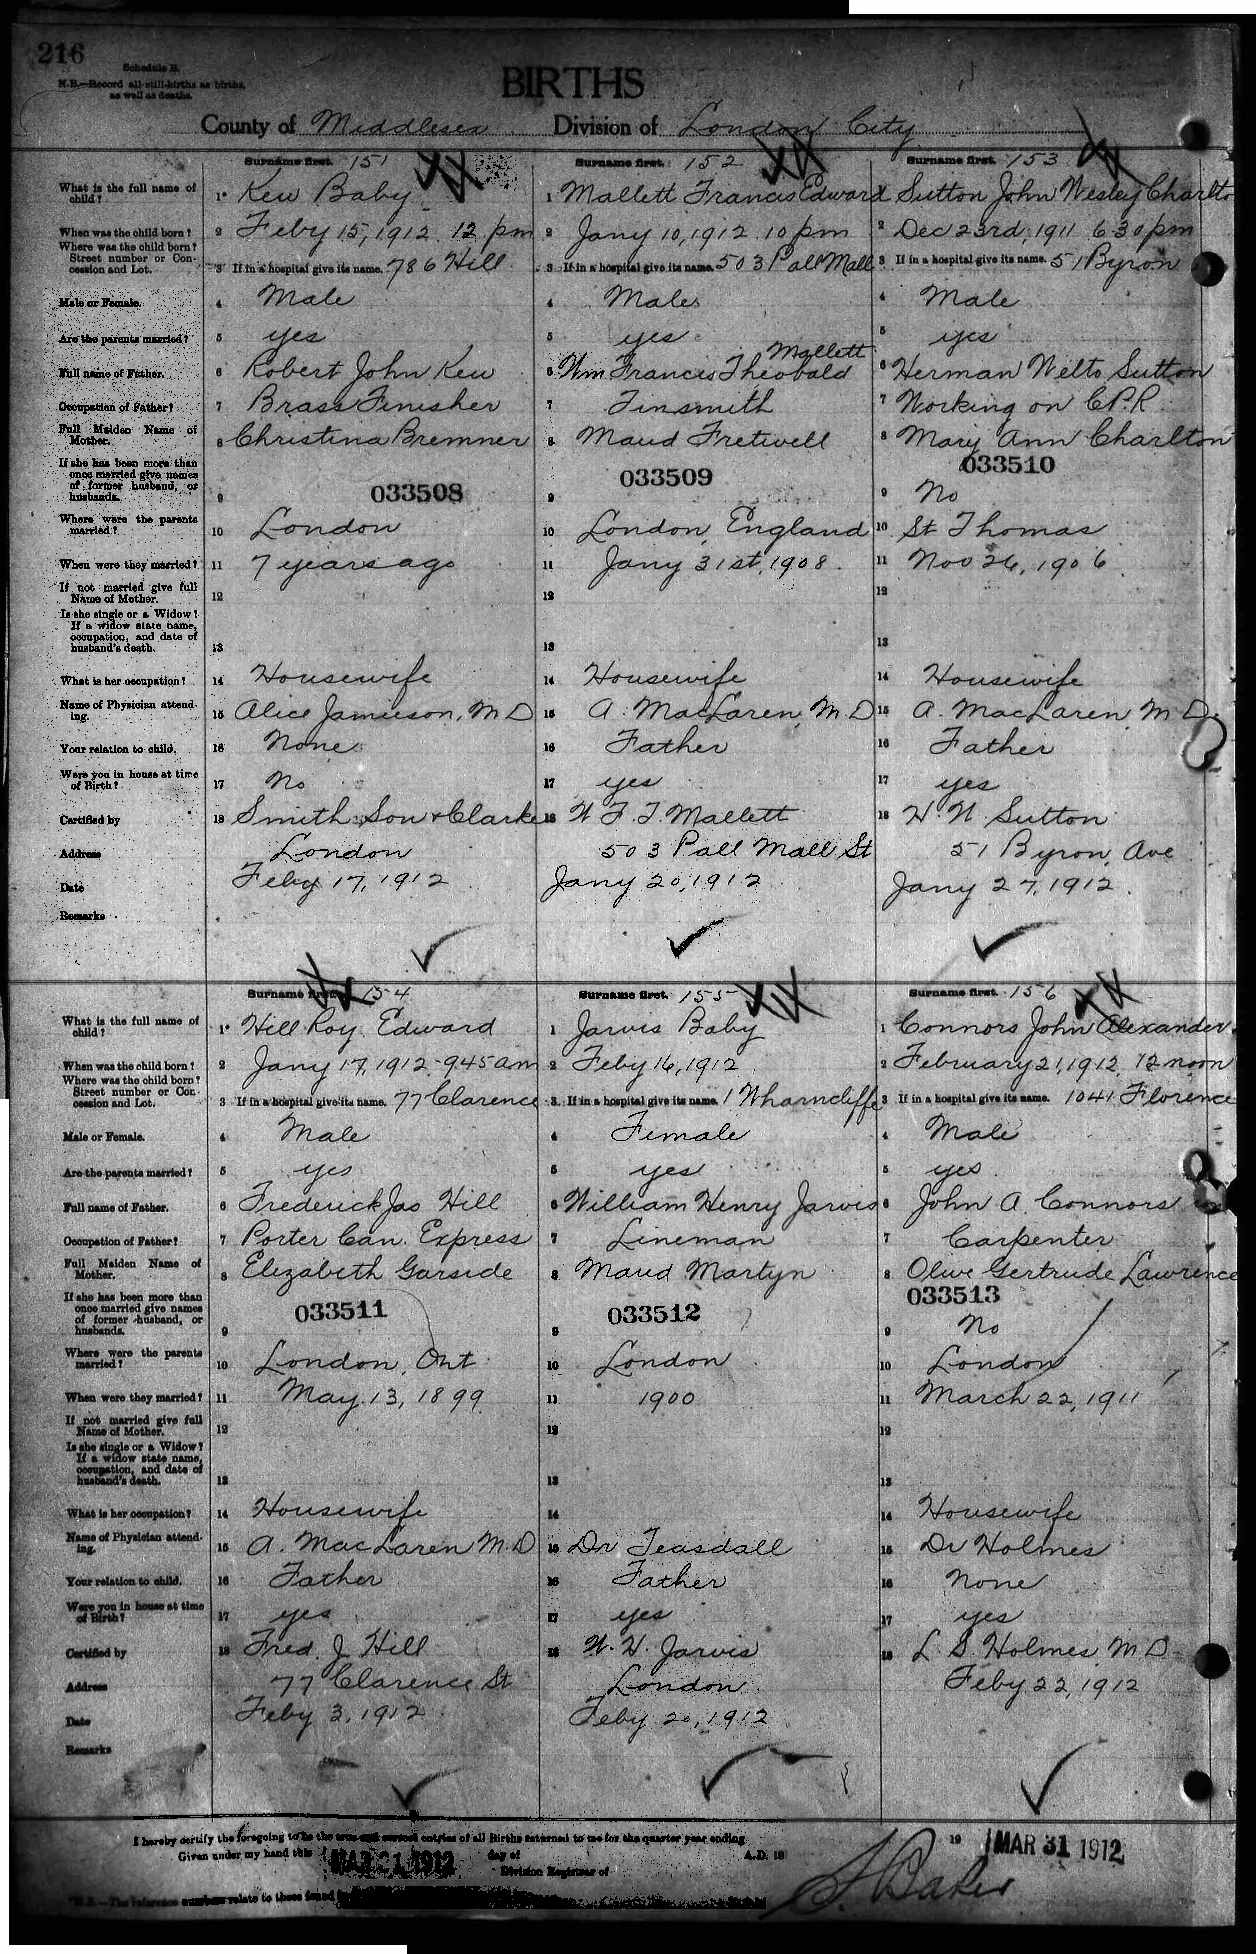 216
Schedule B.
N.B.—Record all still-births as births, as well as deaths.
BIRTHS
County of Middlesex Division of London City
Surname first. 151
Surname first. 152
Surname first. 153
What is the full name of child?
1 Kew Baby
1 Mallett Francis Edward
Sutton John Wesley Charlto
When was the child born?
2 Feby 15, 1912 12 pm
2 Jany 10, 1912 10 pm
2 Dec 23rd, 1911 6 30 pm
Where was the child born? Street number or Concession and Lot.
3 If in a hospital give its name. 786 Hill
3 If in a hospital give its name. 503 Pall Mall
3 If in a hospital give its name. 51 Byron
Male or Female.
4 Male
4 Male
4 Male
Are the parents married?
5 yes
5 yes
5 yes
Full name of Father.
6 Robert John Kew
Mallett
6 Wm Francis Theobald
6 Herman Welto Sutton
Occupation of Father?
7 Brass Finisher
7 Tinsmith
7 Working on C.P.R
Full Maiden Name of Mother.
8 Christina Bremner
8 Maud Fretwell
8 Mary Ann Charlton
If she has been more than once married give names of former husband, or husbands.
9 033508
9 033509
033510
9 No
Where were the parents married?
10 London
10 London, England
10 St Thomas
When were they married?
11 7 years ago
11 Jany 31st, 1908
11 Nov 26, 1906
If not married give full Name of Mother.
12
12
12
Is she single or a Widow? If a widow state name, occupation, and date of husband's death.
13
13
13
What is her occupation?
14 Housewife
14 Housewife
14 Housewife
Name of Physician attending.
15 Alice Jamieson, M D
15 A. MacLaren, M D
15 A. MacLaren M D.
Your relation to child.
16 None
16 Father
16 Father
Were you in house at time of Birth?
17 No
17 yes
17 yes
Certified by
18 Smith, Son & Clarke
18 W F. T. Mallett
18 H. W. Sutton
Address
London
503 Pall Mall St
51 Byron Ave
Date
Feby 17, 1912
Jany 20, 1912
Jany 27, 1912
Remarks
Surname first. 154
Surname first. 155
Surname first. 156
What is the full name of child?
1 Hill Roy Edward
1 Jarvis Baby
1 Connors John Alexander
When was the child born?
2 Jany 17, 1912 9.45 am
2 Feby 16, 1912
2 February 21, 1912, 12 noon
Where was the child born? Street number or Concession and Lot.
3 If in a hospital give its name. 77 Clarence
3 If in a hospital give its name. 1 Wharncliffe
3 If in a hospital give its name. 1041 Florence
Male or Female.
4 Male
4 Female
4 Male
Are the parents married?
5 yes
5 yes
5 yes
Full name of Father.
6 Frederick Jas Hill
6 William Henry Jarvis
6 John A. Connors
Occupation of Father?
7 Porter Can. Express
7 Lineman
7 Carpenter
Full Maiden Name of Mother.
8 Elizabeth Garside
8 Maud Martyn
8 Olive Gertrude Lawrence
If she has been more than once married give names of former husband, or husbands.
9 033511
9 033512
033513
9 No
Where were the parents married?
10 London, Ont
10 London
10 London
When were they married?
11 May 13, 1899
11 1900
11 March 22, 1911
If not married give full Name of Mother.
12
12
12
Is she single or a Widow? If a widow state name, occupation, and date of husband's death.
13
13
13
What is her occupation?
14 Housewife
14
14 Housewife
Name of Physician attending.
15 A. MacLaren M.D
15 Dr Teasdall
15 Dr Holmes
Your relation to child.
16 Father
16 Father
16 None
Were you in house at time of Birth?
17 yes
17 yes
17 yes
Certified by
18 Fred. J. Hill
18 W. H. Jarvis
18 L. S. Holmes, M D
Address
77 Clarence St
London
Feby 22, 1912
Date
Feby 3, 1912
Feby 20, 1912
Remarks
I hereby certify the foregoing to be the true and correct entries of all Births returned to me for the quarter year ending 19 MAR 31 1912
Given under my hand this MAR 31 1912 day of A.D. 19
Division Registrar of
Baker
N.B.—The reference numbers relate to those found